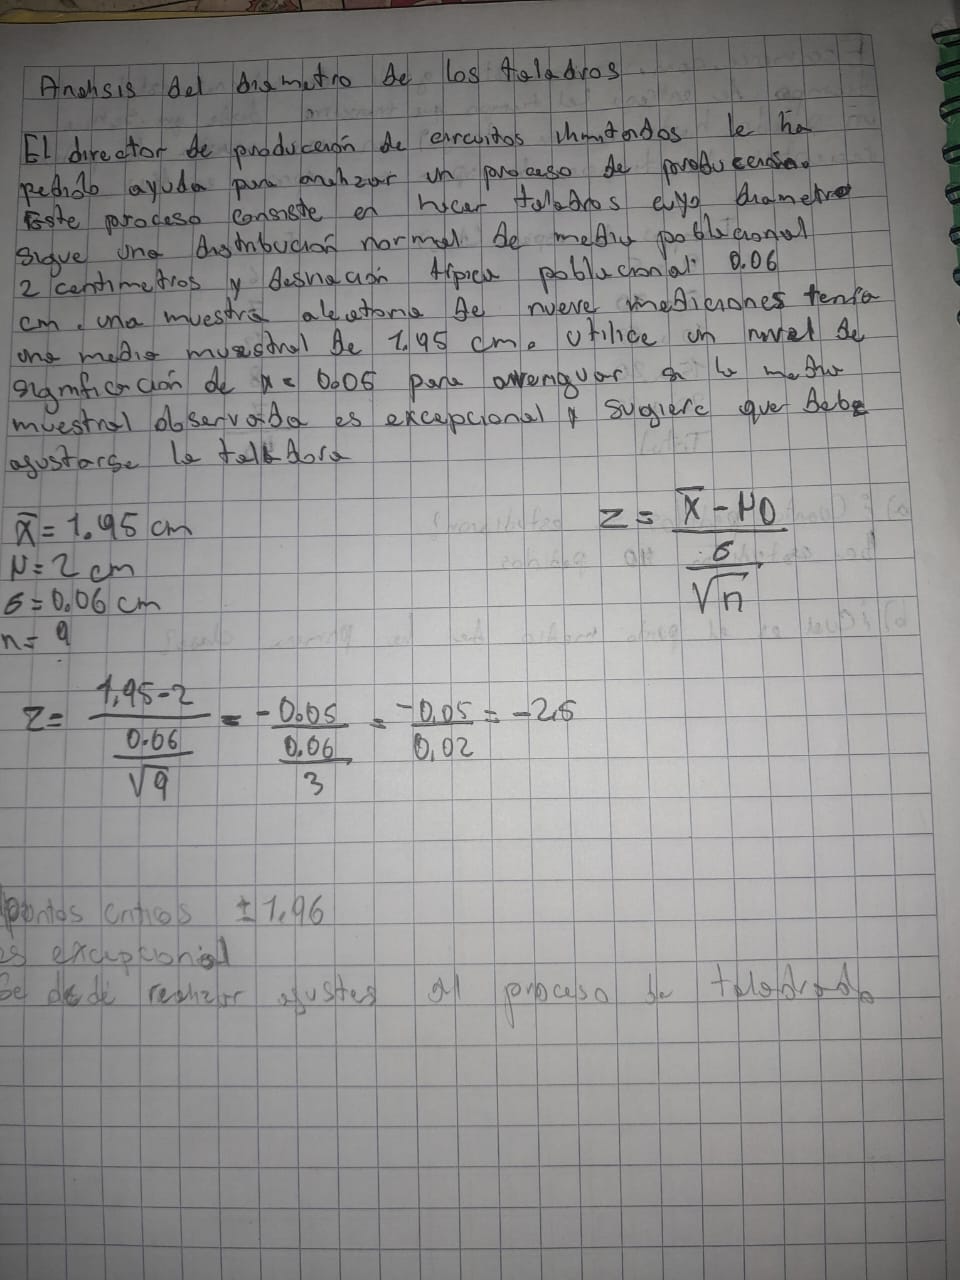 Analisis del diametro de los taladros
El director de producción de circuitos limitados le ha
pedido ayuda para analizar un proceso de producción.
Este proceso consiste en hacer taladros cuyo diametro
sigue una distribución normal de media poblacional
2 centimetros y desviación típica poblacional 0.06
cm. una muestra aleatoria de nueve mediciones tenía
una media muestral de 1.95 cm. Utilice un nivel de
significación de α = 0.05 para averiguar si la media
muestral observada es excepcional y sugiere que debe
ajustarse la taladora
x̄ = 1.95 cm
z = (x̄ - μ0) / (σ / √n)
μ = 2 cm
σ = 0.06 cm
n = 9
z = (1.95 - 2) / (0.06 / √9) = -0.05 / (0.06 / 3) = -0.05 / 0.02 = -2.5
puntos criticos ±1.96
es excepcional
Se realizar ajustes al proceso de taladrado